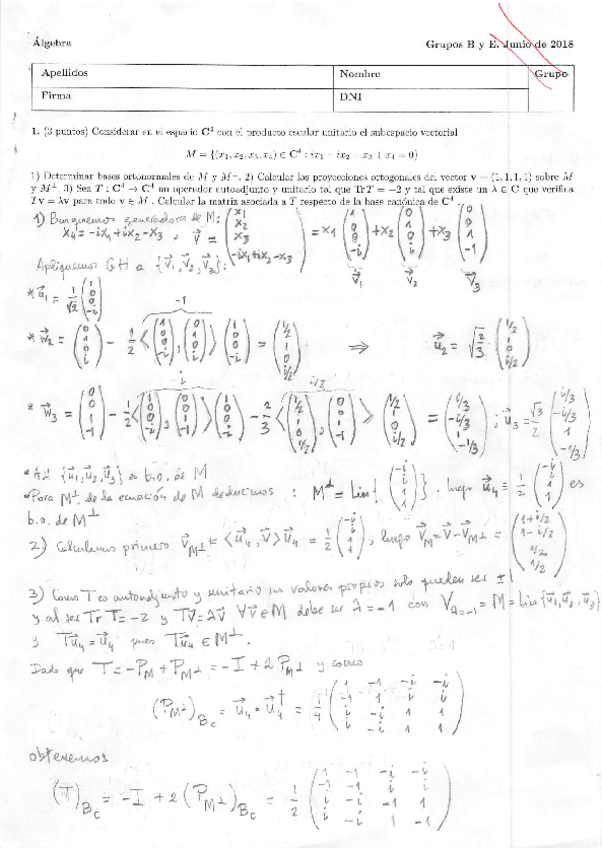 Álgebra Grupos B y E. Junio de 2018
Apellidos Nombre Grupo
Firma DNI
1. (3 puntos) Considerar en el espacio C⁴ con el producto escalar unitario el subespacio vectorial
M = {(x₁, x₂, x₃, x₄) ∈ C⁴ : ix₁ − ix₂ + x₃ + x₄ = 0}
1) Determinar bases ortonormales de M y M⊥. 2) Calcular las proyecciones ortogonales del vector v = (1, 1, 1, 1) sobre M
y M⊥. 3) Sea T : C⁴ → C⁴ un operador autoadjunto y unitario tal que Tr T = −2 y tal que existe un λ ∈ C que verifica
Tv = λv para todo v ∈ M. Calcular la matriz asociada a T respecto de la base canónica de C⁴.
1) Busquemos generadores de M:
x₄ = -ix₁ + ix₂ - x₃, v⃗ = (x₁ x₂ x₃ -ix₁+ix₂-x₃) = x₁ (1 0 0 -i) + x₂ (0 1 0 i) + x₃ (0 0 1 -1)
v⃗₁ v⃗₂ v⃗₃
Apliquemos GH a {v⃗₁, v⃗₂, v⃗₃}:
* u⃗₁ = 1/√2 (1 0 0 -i)
-1
* w⃗₂ = (0 1 0 i) - 1/2 ⟨(1 0 0 -i), (0 1 0 i)⟩ (1 0 0 -i) = (1/2 1 0 i/2) ⟹ u⃗₂ = √2/3 · (1/2 1 0 i/2)
-i i/2
* w⃗₃ = (0 0 1 -1) - 1/2 ⟨(1 0 0 -i), (0 0 1 -1)⟩ (1 0 0 -i) - 2/3 ⟨(1/2 1 0 i/2), (0 0 1 -1)⟩ (1/2 1 0 i/2) = (i/3 -i/3 1 -1/3); u⃗₃ = √3/2 (i/3 -i/3 1 -1/3)
• Así {u⃗₁, u⃗₂, u⃗₃} es b.o. de M
• Para M⊥, de la ecuación de M deducimos: M⊥ = Lin{(-i i 1 1)}. luego u⃗₄ = 1/2 (-i i 1 1) es
b.o. de M⊥
2) Calculamos primero v⃗M⊥ = ⟨u⃗₄, v⃗⟩u⃗₄ = 1/2 (-i i 1 1), luego v⃗M = v⃗ - v⃗M⊥ = (1+i/2 1-i/2 1/2 1/2)
3) Como T es autoadjunto y unitario sus valores propios solo pueden ser ±1
y al ser Tr T = -2 y Tv⃗ = λv⃗ ∀v⃗ ∈ M debe ser λ = -1 con V_{λ=-1} = M = Lin{u⃗₁, u⃗₂, u⃗₃}
y Tu⃗₄ = u⃗₄ pues Tu⃗₄ ∈ M⊥.
Dado que T = -P_M + P_M⊥ = -I + 2 P_M⊥ y como
(P_M⊥)_Bc = u⃗₄ · u⃗₄† = 1/4 (1 -1 -i -i
-1 1 i i
i -i 1 1
i -i 1 1)
obtenemos
(T)_Bc = -I + 2 (P_M⊥)_Bc = 1/2 (-1 -1 -i -i
-1 -1 i i
i -i -1 1
i -i 1 -1)